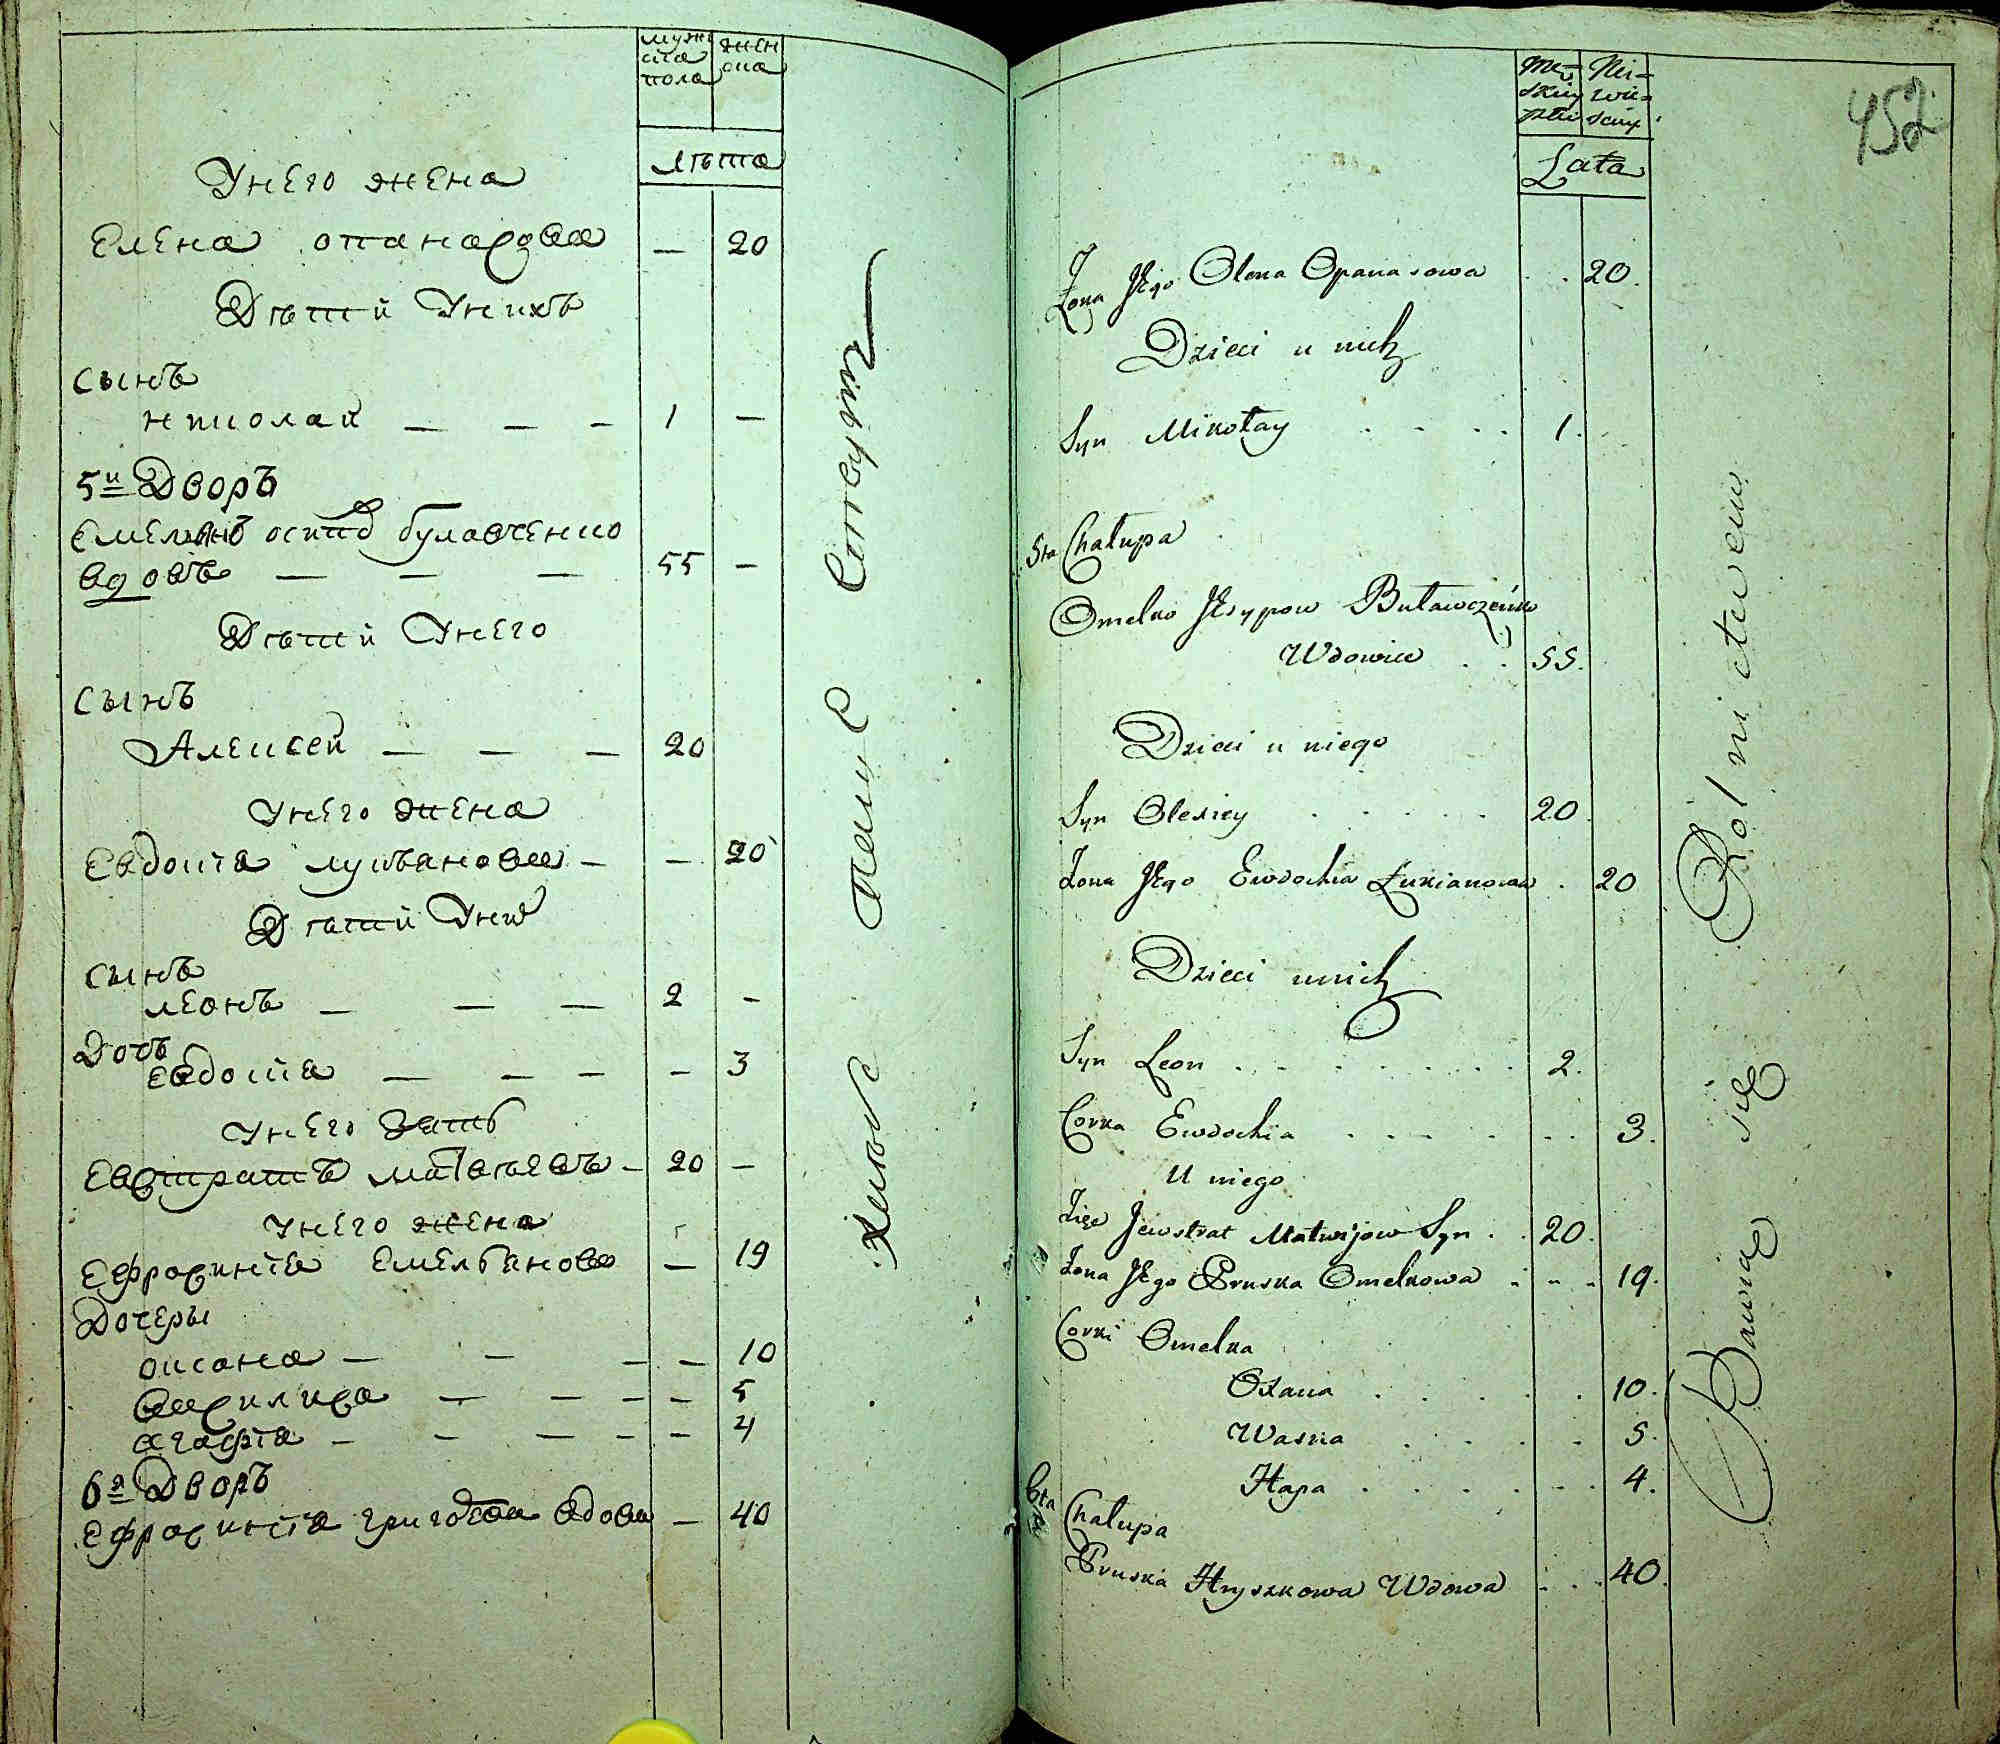 мужска пола
женска
лѣта
У него жена
Елена опанасова — 20
Дѣтей У нихъ
Сынъ
николай — — — 1 —
5й Дворъ
Емельянъ осиповъ булавченко
вдовъ — — — 55 —
Дѣтей У него
Сынъ
Алексей — — — 20
У него жена
Евдокіа лукьянова — — 20
Дѣтей У них
Сынъ
леонъ — — — 2 —
Дочь
евдокіа — — — — 3
У него зять
Евстратъ матвѣевъ — 20 —
У него жена
Ефросиніа Емельянова — 19
Дочеры
оксана — — — — 10
василиса — — — — 5
агафіа — — — — — 4
6й Дворъ
Ефросиніа григорова вдова — 40
Живутъ
Lata
452
Żona Jego Olena Opanasowa . . 20.
Dzieci u nich
Syn Mikołay . . . . 1.
5ta Chałupa
Omelko Jesypow Buławczenko
Wdowiec . . 55.
Dzieci u niego
Syn Olexiey . . . . . 20.
Żona Jego Ewdochia Łukianowa . 20
Dzieci u nich
Syn Leon . . . . . . . 2.
Corka Ewdochia . . . . . . 3.
U niego
Zięć Jewstrat Matwijow Syn . . 20.
Żona Jego Pruska Omelkowa . . . 19.
Corki Omelka
Oxana . . . . . 10.
Waska . . . . 5.
Hapa . . . . . . 4.
6ta Chałupa
Pruska Hryszkowa Wdowa . . . 40.
Bawią się Rolnictwem